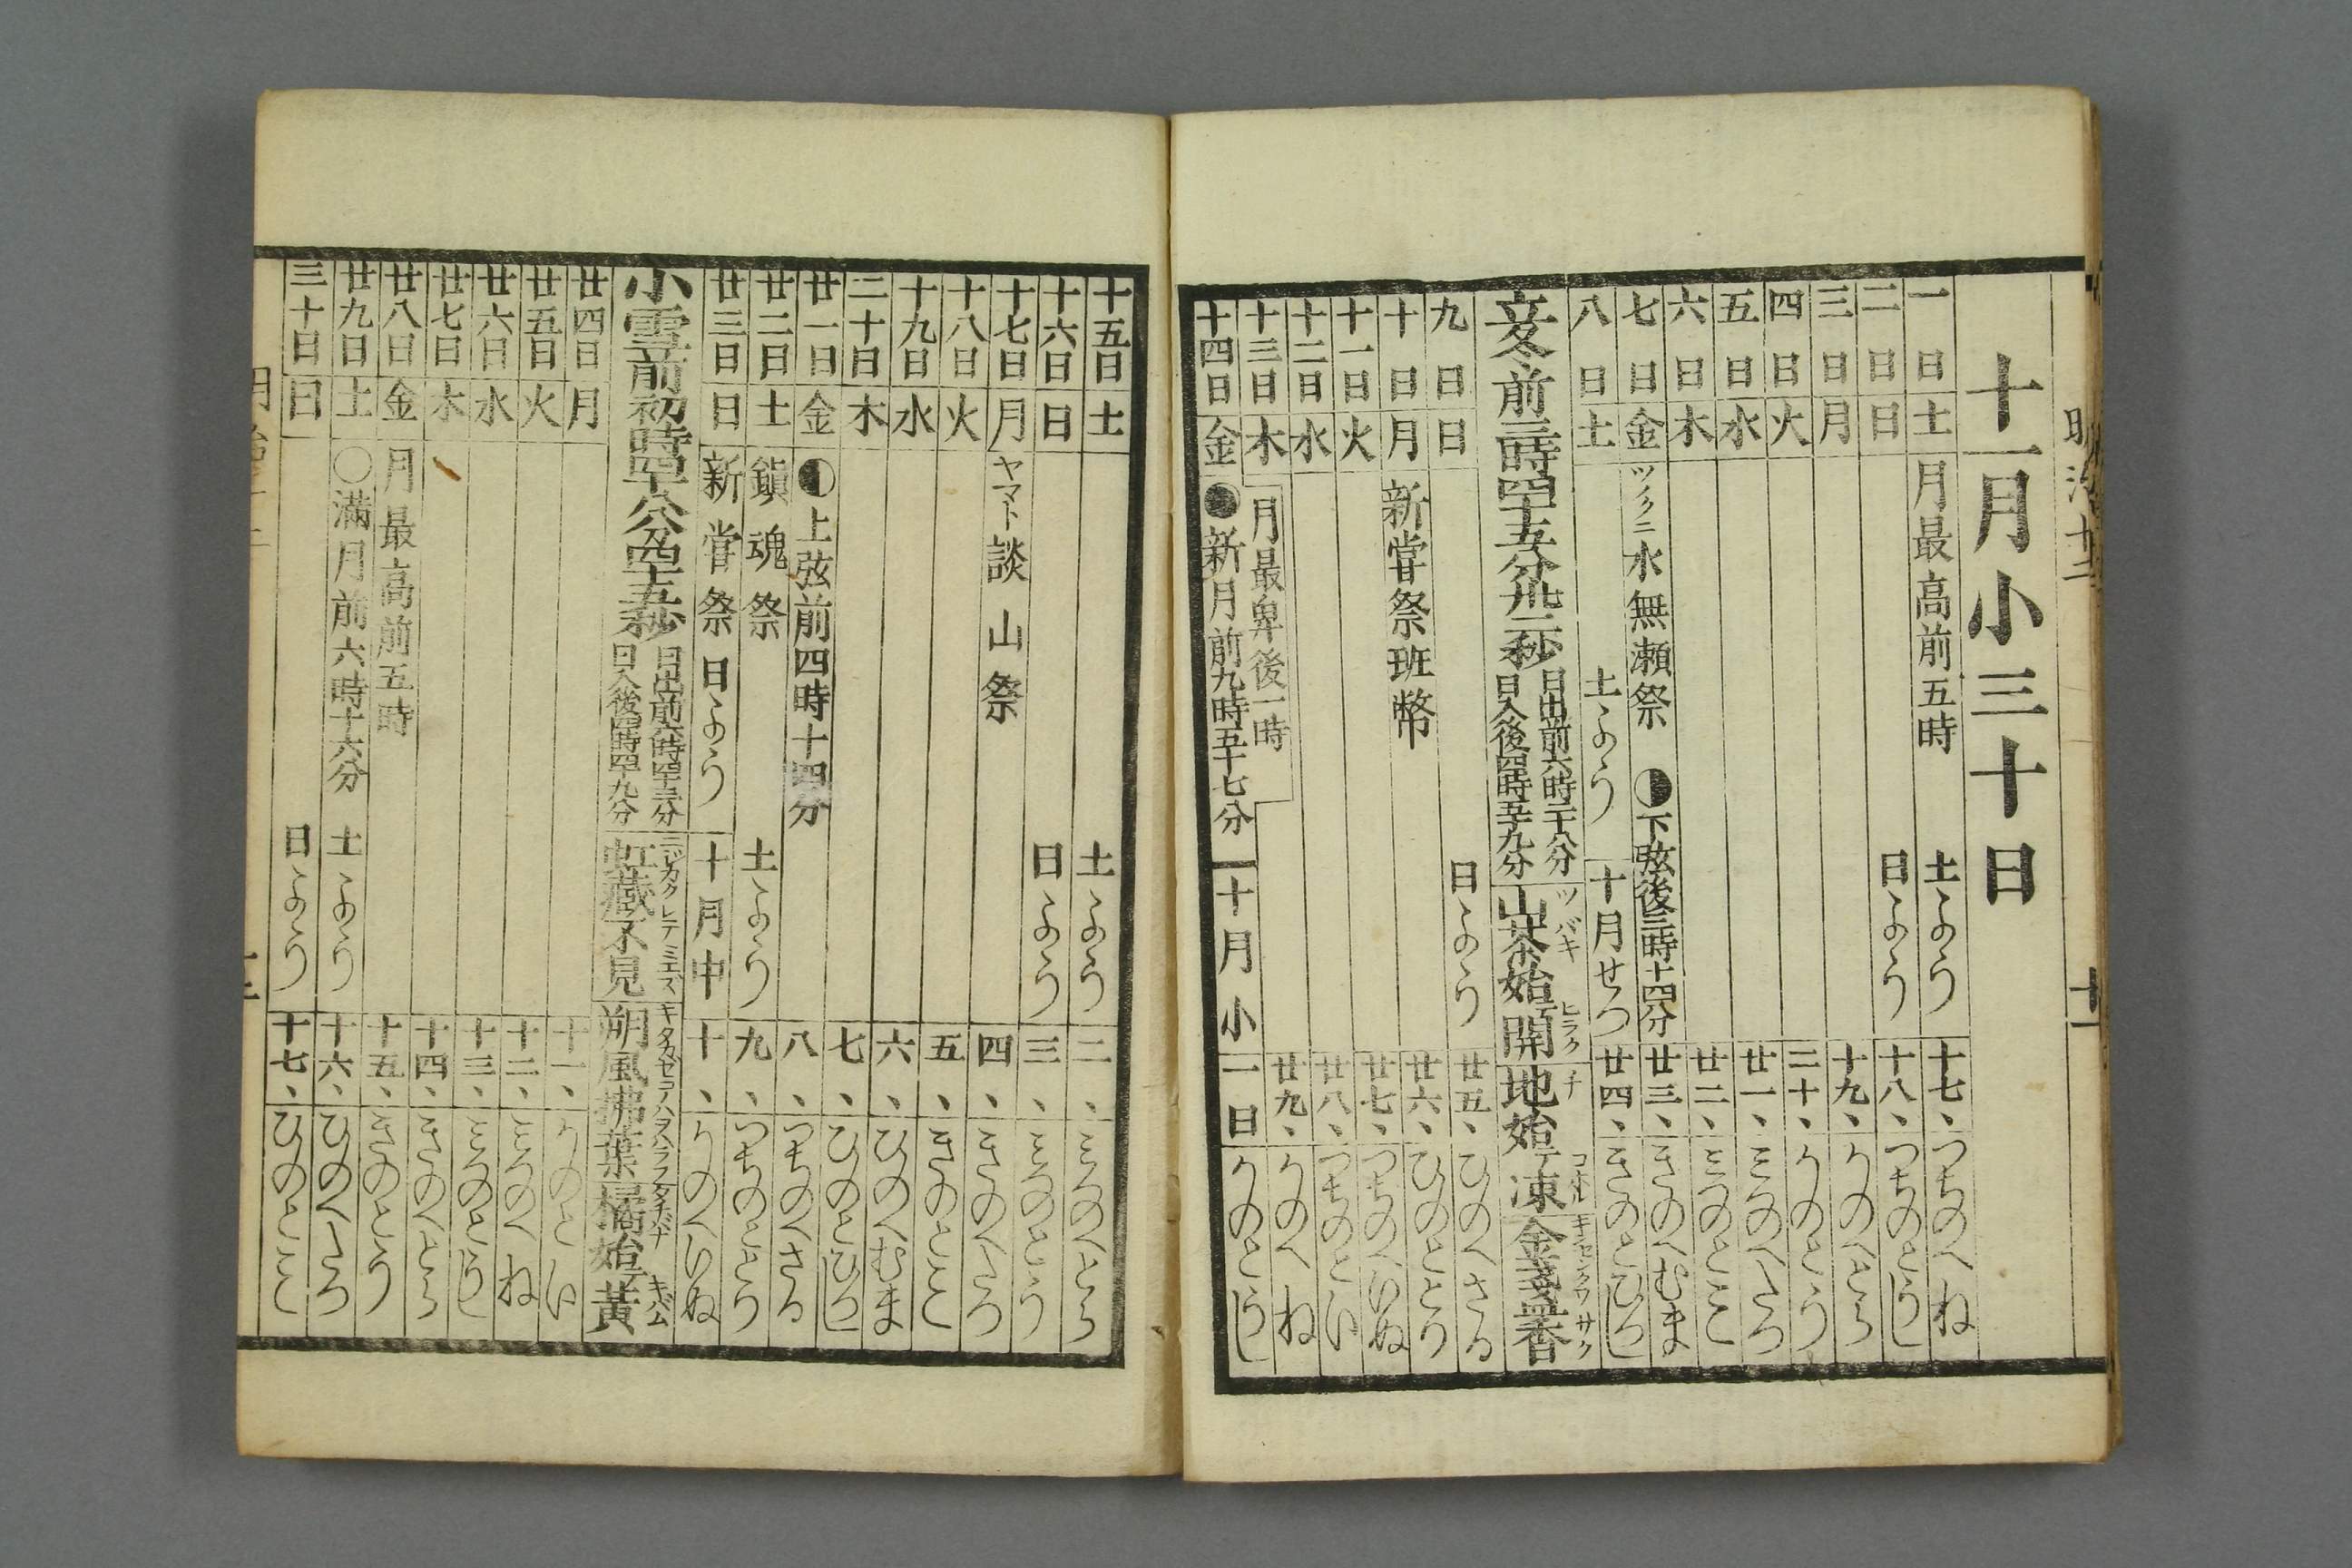 明治十二
十一
十一月小三十日
一日 土 月最高前五時 土よう 十七、 つちのへね
二日 日 日よう 十八、 つちのとうし
三日 月 十九、 かのへとら
四日 火 二十、 かのとう
五日 水 廿一、 みつのへたつ
六日 木 廿二、 みつのとみ
七日 金 ツイクニ 水無瀬祭 ◑下弦後三時十四分 廿三、 きのへむま
八日 土 土よう 十月せつ 廿四、 きのとひつし
立冬前三時四十五分卅二秒 日出前六時二十八分 日入後四時五十九分 山茶始開 ツバキ ヒラク 地始テ凍 チ コホル 金盞香 キンセンクワ サク
九日 日 日よう 廿五、 ひのへさる
十日 月 新嘗祭班幣 廿六、 ひのととり
十一日 火 廿七、 つちのへいぬ
十二日 水 廿八、 つちのとい
十三日 木 月最卑後一時 廿九、 かのへね
十四日 金 ●新月前九時五十七分 十月小 一日 かのとうし
十五日 土 土よう 二、 みつのへとら
十六日 日 日よう 三、 みつのとう
十七日 月 ヤマト 談山祭 四、 きのへたつ
十八日 火 五、 きのとみ
十九日 水 六、 ひのへむま
二十日 木 七、 ひのとひつし
廿一日 金 ◐上弦前四時十四分 八、 つちのへさる
廿二日 土 鎮魂祭 土よう 九、 つちのととり
廿三日 日 新嘗祭 日よう 十月中 十、 かのへいぬ
小雪前初時四十八分四十五秒 日出前六時四十三分 日入後四時四十九分 虹藏不見 ニジカクレテミエズ 朔風拂葉 キタカゼコノハヲハラフ 橘始テ黃 タチバナ キバム
廿四日 月 十一、 かのとい
廿五日 火 十二、 みつのへね
廿六日 水 十三、 みつのとうし
廿七日 木 十四、 きのへとら
廿八日 金 月最高前五時 十五、 きのとう
廿九日 土 ○滿月前六時十六分 土よう 十六、 ひのへたつ
三十日 日 日よう 十七、 ひのとみ